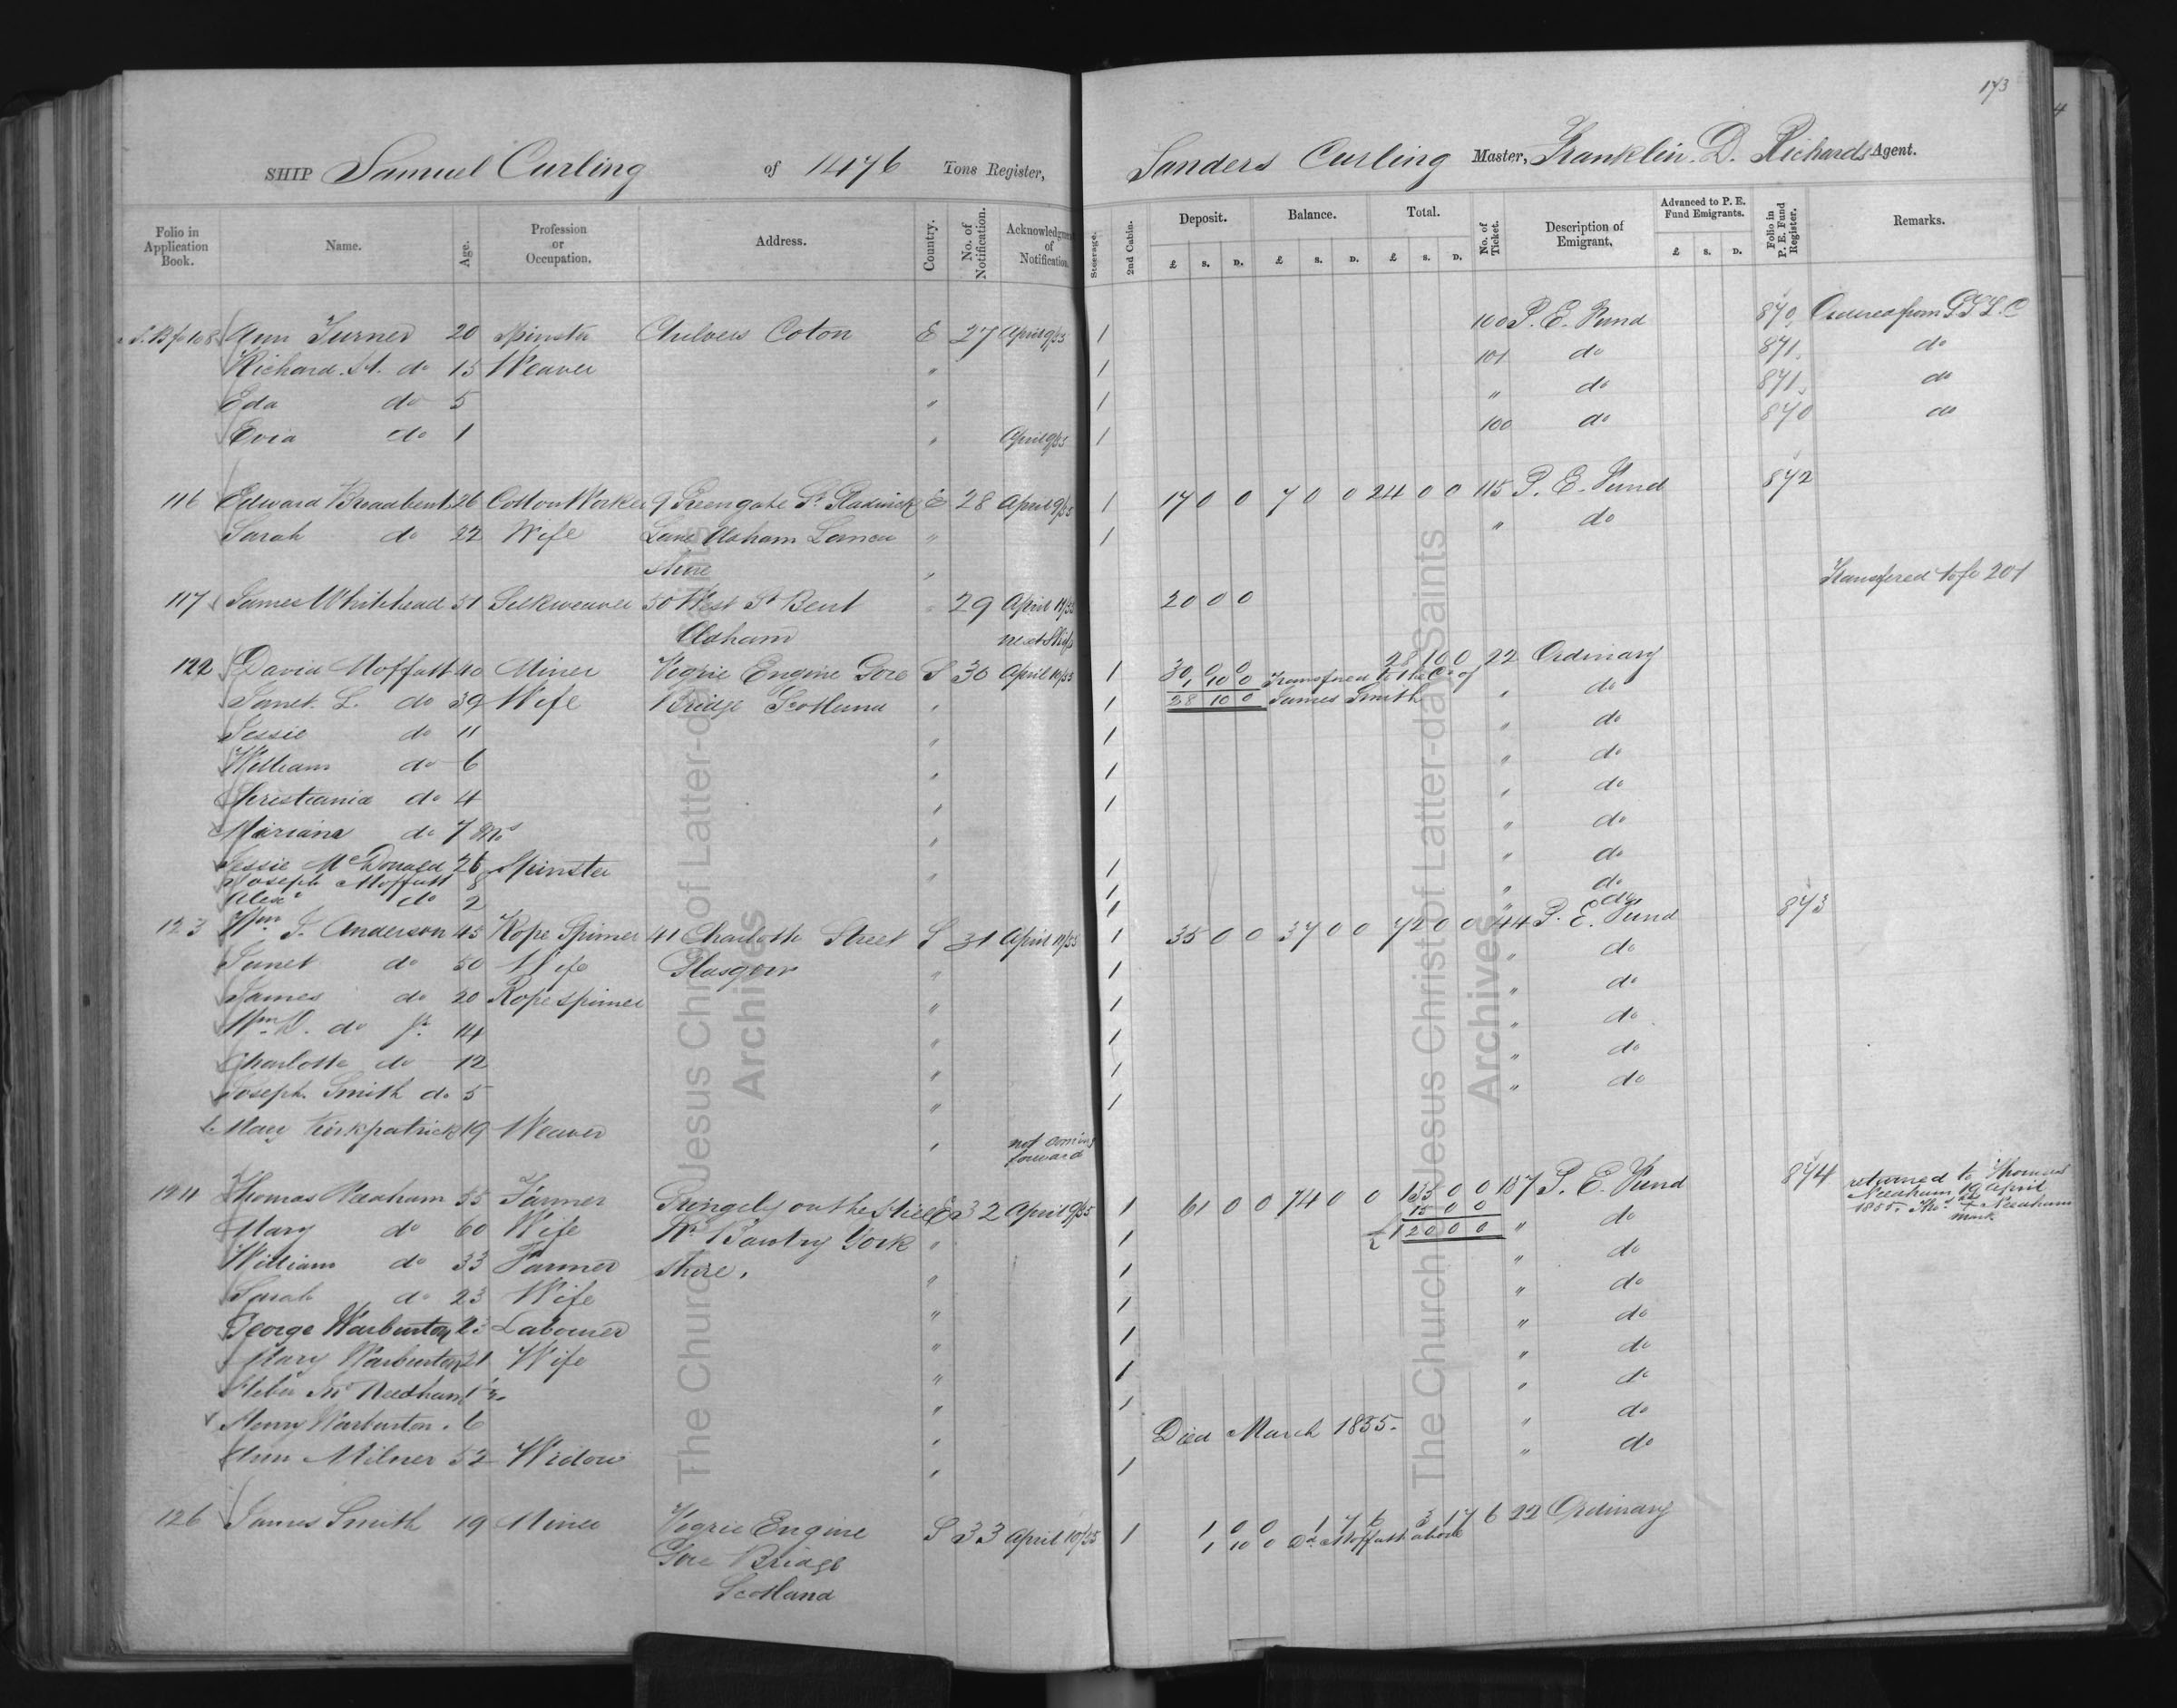 173
SHIP Samuel Curling of 1476 Tons Register, Sanders Curling Master, Franklin D. Richards Agent.
Folio in Application Book. Name. Age. Profession or Occupation. Address. Country. No. of Notification. Acknowledgment of Notification. Steerage. 2nd Cabin. Deposit. £ s. D. Balance. £ s. D. Total. £ s. D. No. of Ticket. Description of Emigrant. Advanced to P. E. Fund Emigrants. £ s. D. Folio in P. E. Fund Register. Remarks.
108 Ann Turner 20 Spinster Chilvers Coton E 27 April 9/55 1 100 P. E. Fund 870 Ordered from G S L C
Richard H. do 15 Weaver " 1 101 do 871 do
Eda do 5 " 1 " do 871 do
Evia do 1 " April 9/55 1 100 do 870 do
116 Edward Broadbent 26 Cotton Worker 9 Greengate St. Gladwick E 28 April 9/55 1 17 0 0 7 0 0 24 0 0 115 P. E. Fund 872
Sarah do 22 Wife Lane Oldham Lanca " 1 " do
shire "
117 James Whitehead 51 Silkweaver 50 West St Bent " 29 April 11/55 20 0 0 Transfered to fo 201
Oldham next Ship
122 David Moffatt 40 Miner Vogrie Engine Gore S 30 April 10/55 1 30 0 0 28 10 0 22 Ordinary
1 10 0 Transfered to the Cr of
Janet L. do 39 Wife Bridge Scotland " 1 28 10 0 James Smith " do
Jessie do 11 " 1 " do
William do 6 " 1 " do
Christiania do 4 " 1 " do
Mariana do 7 Mos " " do
Jessie McDonald 26 Spinster " 1 " do
Joseph Moffatt 8 1 " do
Alexr do 2 1 " do
123 Wm. J. Anderson 45 Rope Spinner 41 Charlotte Street S 31 April 11/55 1 35 0 0 37 0 0 72 0 0 44 P. E. Fund 873
Janet do 50 Wife Glasgow " 1 " do
James do 20 Rope spinner " 1 " do
Wm. D. do Jr. 14 " 1 " do
Charlotte do 12 " 1 " do
Joseph Smith do 5 " 1 " do
Mary Kirkpatrick 19 Weaver " not coming forward
Thomas Needham 55 Farmer Gringely on the Hill E 32 April 9/55 1 61 0 0 74 0 0 135 0 0 157 P. E. Fund 874 returned to Thomas
15 0 0 Needham 19 April
Mary do 60 Wife Nr. Bawtry York " 1 £ 120 0 0 " do 1855. Thos. his + Needham mark
William do 33 Farmer Shire. " 1 " do
Sarah do 23 Wife 1 " do
George Warburton 23 Labourer " 1 " do
Mary Warburton 21 Wife " 1 " do
Heber Needham 1 " 1 " do
Henry Warburton. 6 " Died March 1855. " do
Ann Milner 52 Widow " 1 " do
126 James Smith 19 Miner Vogrie Engine S 33 April 10/55 1 1 0 0 1 7 6 3 17 6 22 Ordinary
Gore Bridge 1 10 0 Dd. Moffatt above
Scotland
The Church of Jesus Christ of Latter-day Saints
Archives
The Church of Jesus Christ of Latter-day Saints
Archives